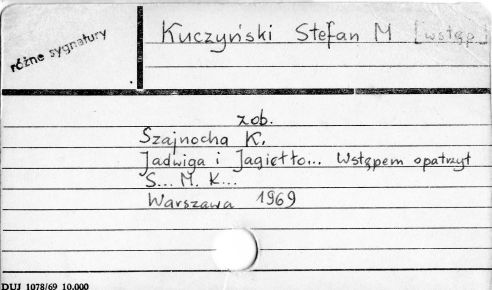 Kuczyński Stefan M [wstęp]
różne sygnatury
zob.
Szajnocha K.
Jadwiga i Jagiełło... Wstępem opatrzył
S... M. K...
Warszawa 1969
DUJ 1078/69 10.000